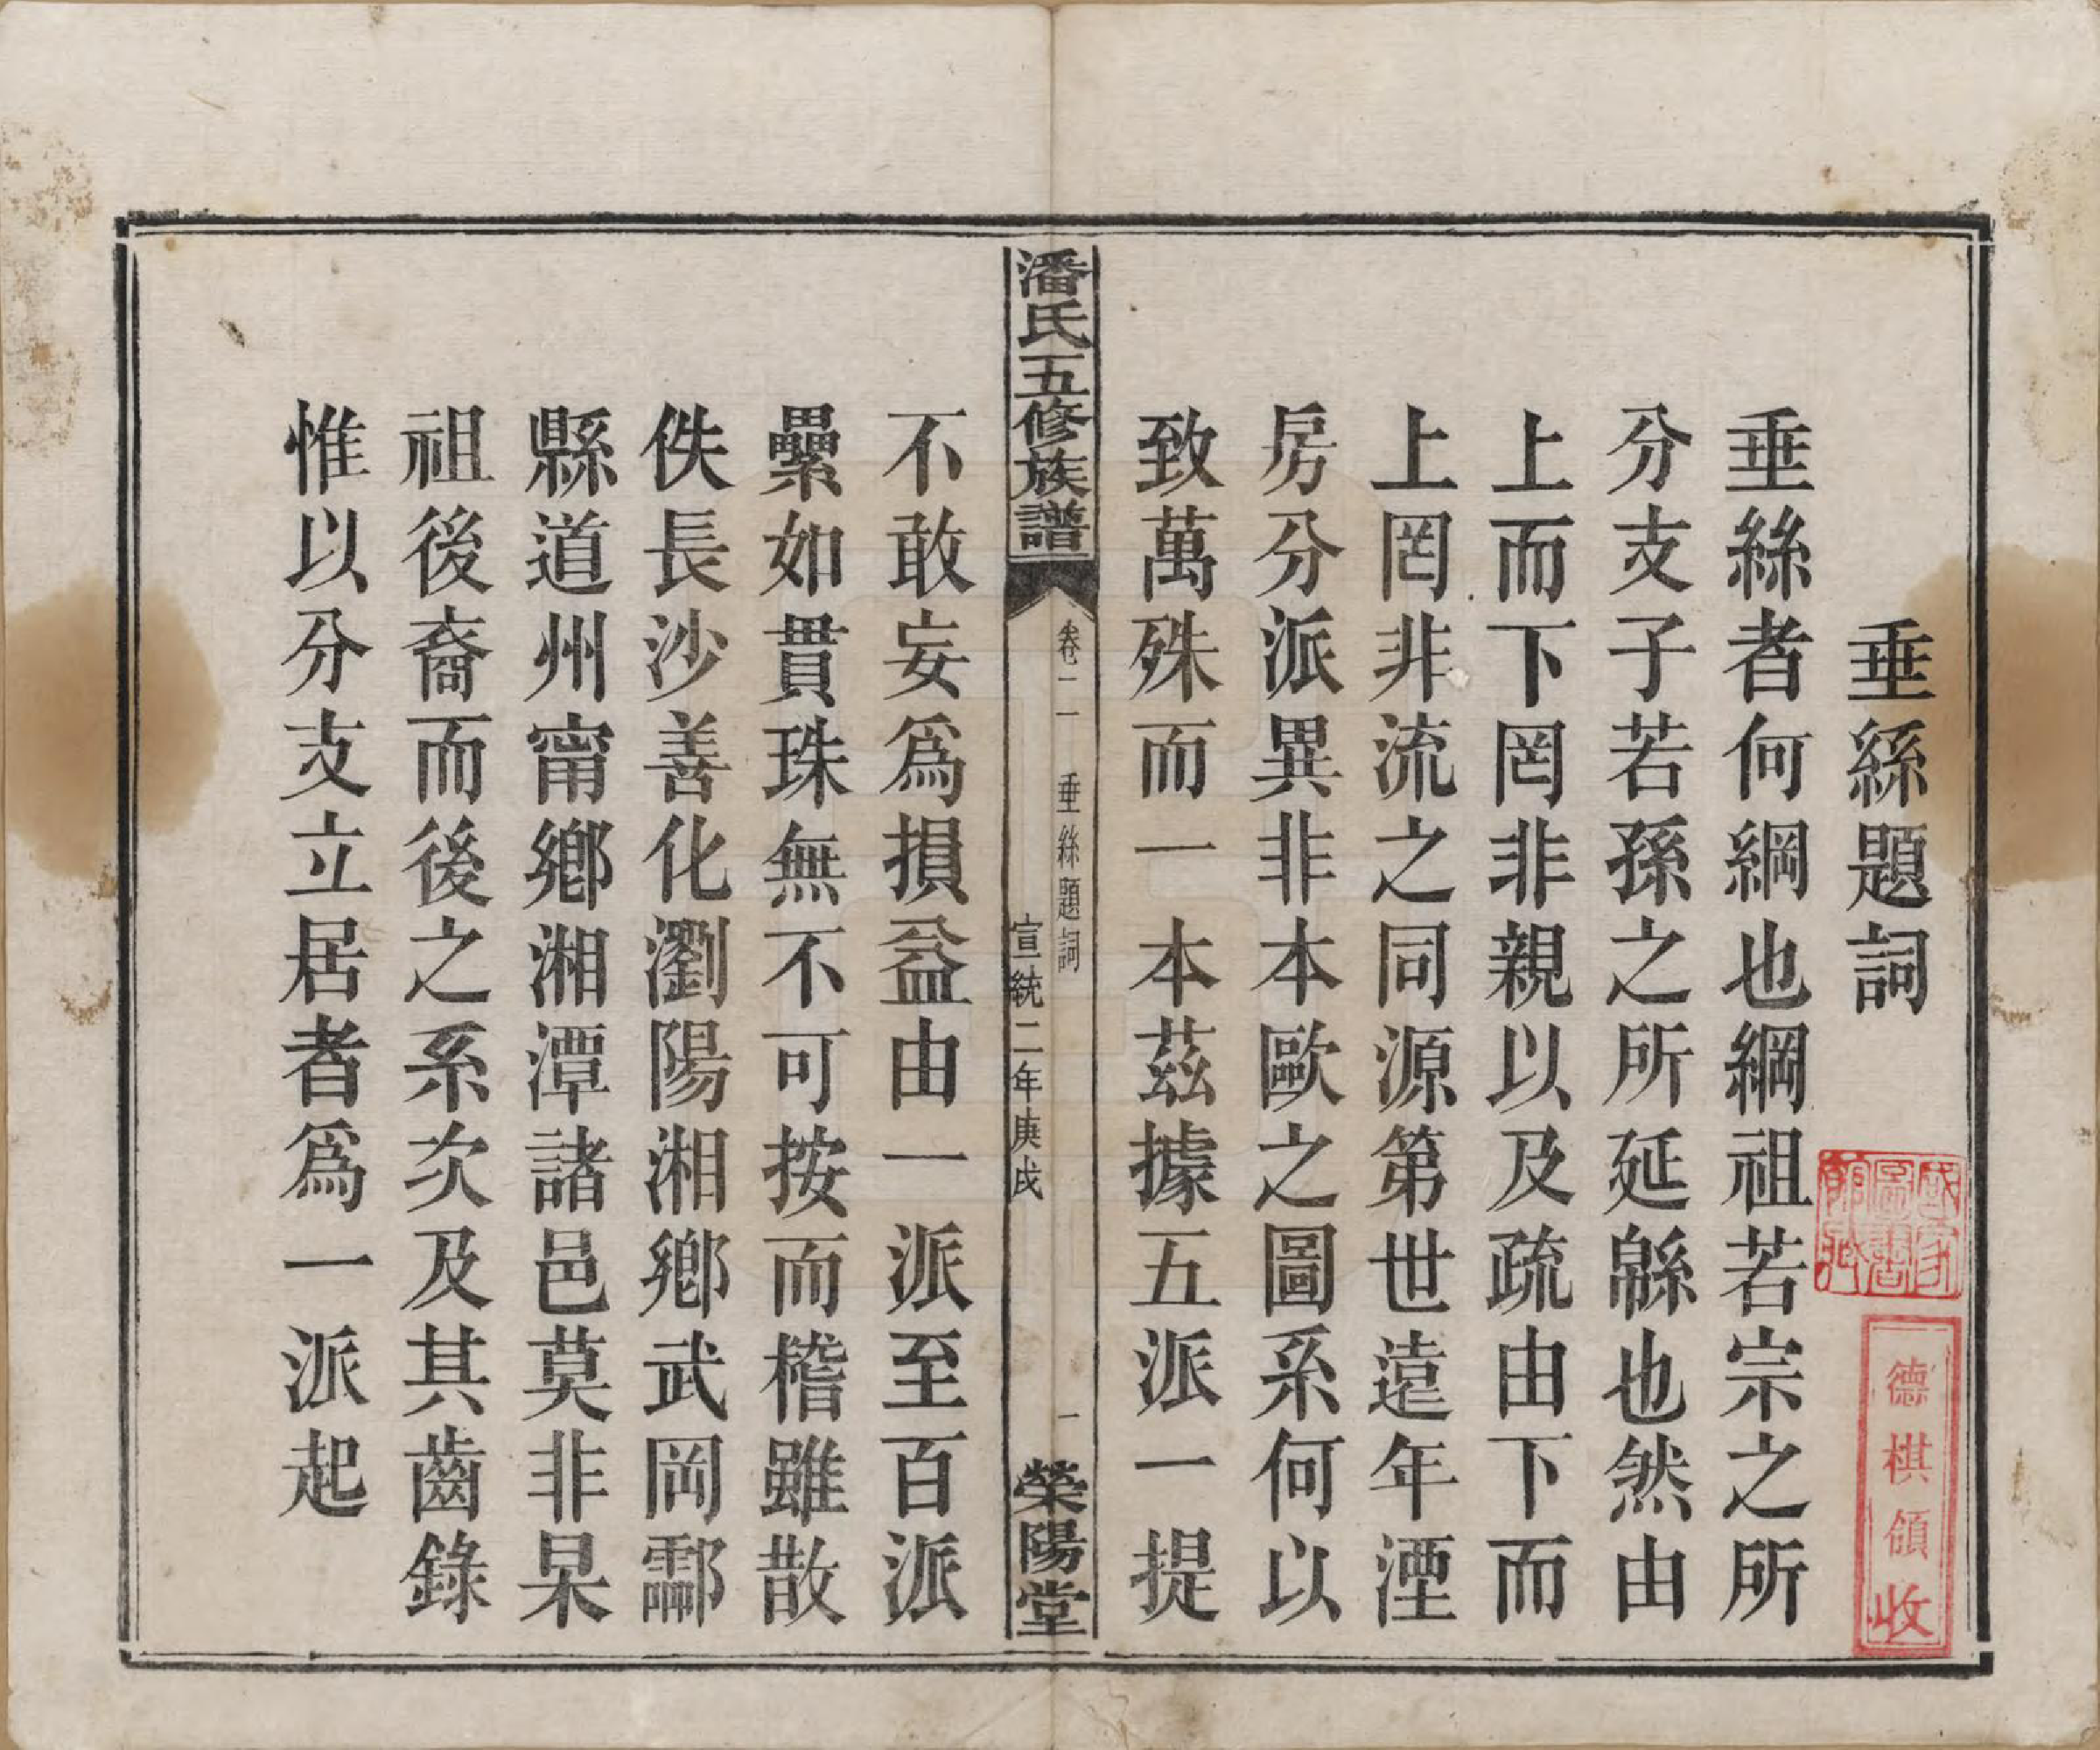 垂絲題詞
垂絲者何綱也綱祖若宗之所
分支子若孫之所延緜也然由
上而下罔非親以及疏由下而
上罔非流之同源第世遠年湮
房分派異非本歐之圖系何以
致萬殊而一本茲據五派一提
潘氏五修族譜
卷二一
垂絲題詞
宣統二年庚戌
一
榮陽堂
不敢妄爲損益由一派至百派
纍如貫珠無不可按而稽雖散
佚長沙善化瀏陽湘鄉武岡酃
縣道州甯鄉湘潭諸邑莫非杲
祖後裔而後之系次及其齒錄
惟以分支立居者爲一派起
國家圖書館藏
德棋領收